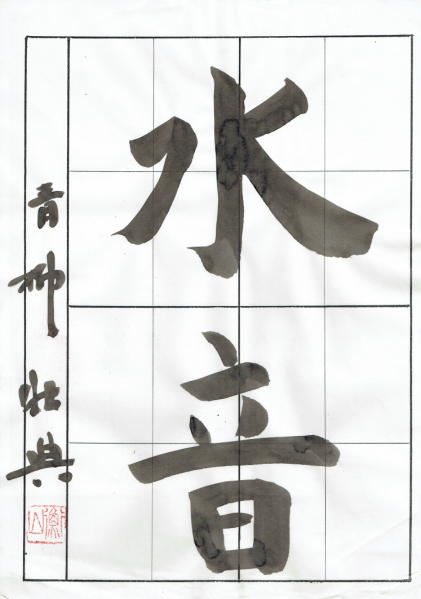 水音
青柳壮典